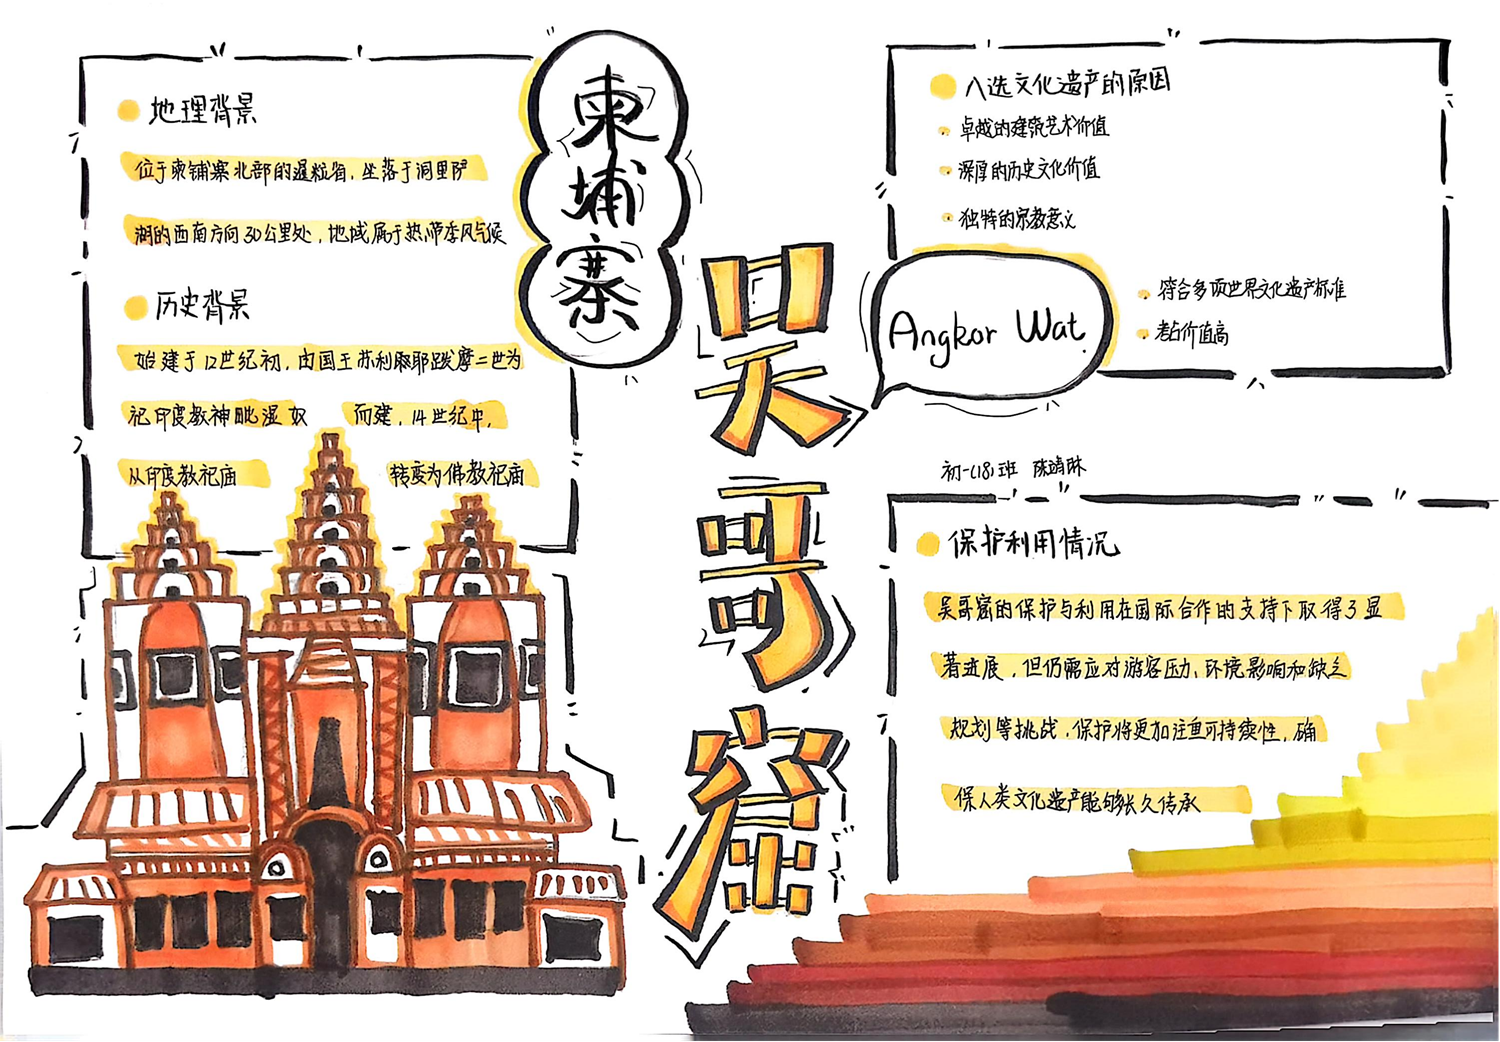 地理背景
位于柬铺寨北部的暹粒省，坐落于洞里萨
湖的西南方向30公里处，地域属于热带季风气候
历史背景
始建于12世纪初，由国王苏利耶耶跋摩二世为
祀印度教神毗湿奴 而建，14世纪中，
从印度教祀庙 转变为佛教祀庙
柬埔寨
吴哥窟
Angkor Wat.
入选文化遗产的原因
卓越的建筑艺术价值
深厚的历史文化价值
独特的宗教意义
符合多项世界文化遗产标准
考古价值高
初一(18)班 陈靖琳
保护利用情况
吴哥窟的保护与利用在国际合作的支持下取得了显
著进展，但仍需应对游客压力、环境影响和缺乏
规划等挑战，保护将更加注重可持续性，确
保人类文化遗产能够长久传承